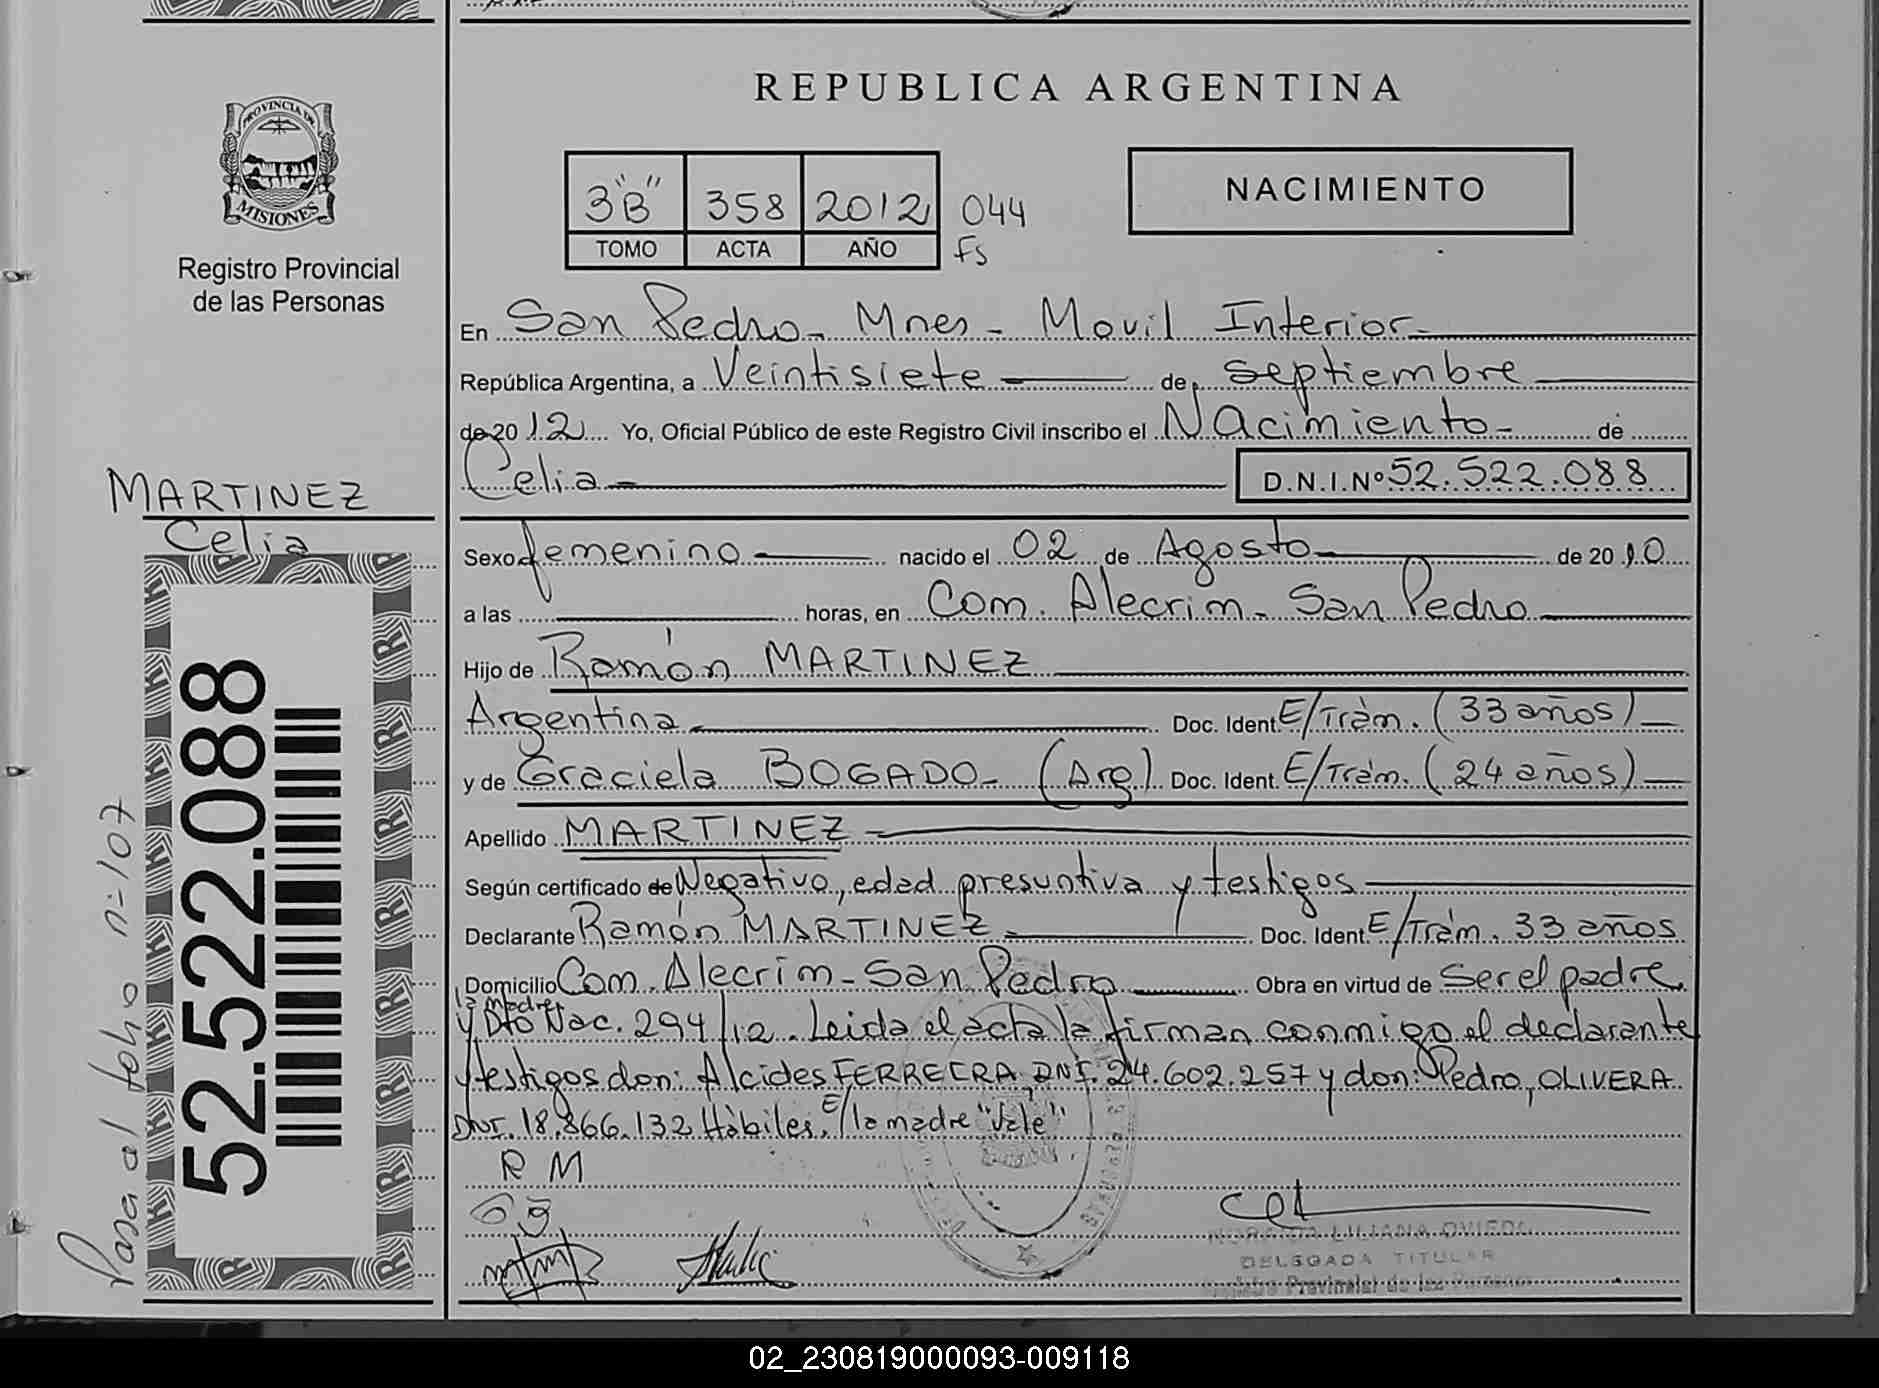 REPUBLICA ARGENTINA
PROVINCIA DE
MISIONES
Registro Provincial
de las Personas
NACIMIENTO
3"B" 358 2012 044
TOMO ACTA AÑO Fs
En San Pedro - Mnes - Movil Interior
República Argentina, a Veintisiete de septiembre
de 2012 Yo, Oficial Público de este Registro Civil inscribo el Nacimiento - de
Celia D.N.I.Nº 52.522.088
MARTINEZ
Celia
Sexo femenino nacido el 02 de Agosto de 2010
a las horas, en Com. Alecrim - San Pedro
Hijo de Ramón MARTINEZ
Argentina Doc. Ident. E/Trám. (33 años)
y de Graciela BOGADO - (Arg.) Doc. Ident. E/Trám. (24 años)
Apellido MARTINEZ
Según certificado de Negativo, edad presuntiva y testigos
Declarante Ramón MARTINEZ Doc. Ident. E/Trám. 33 años
Domicilio Com. Alecrim - San Pedro Obra en virtud de Ser el padre
la madre
y Dto Nac. 294/12. Leida el acta la firman conmigo el declarante
y testigos don: Alcides FERREIRA DNI. 24.602.257 y don: Pedro, OLIVERA
DNI. 18.866.132 Hábiles, E/ la madre "Vale"
R M
NORAIDA LILIANA OVIEDO
DELEGADA TITULAR
Registro Provincial de las Personas
52.522.088
Pasa al folio nº 107
02_230819000093-009118